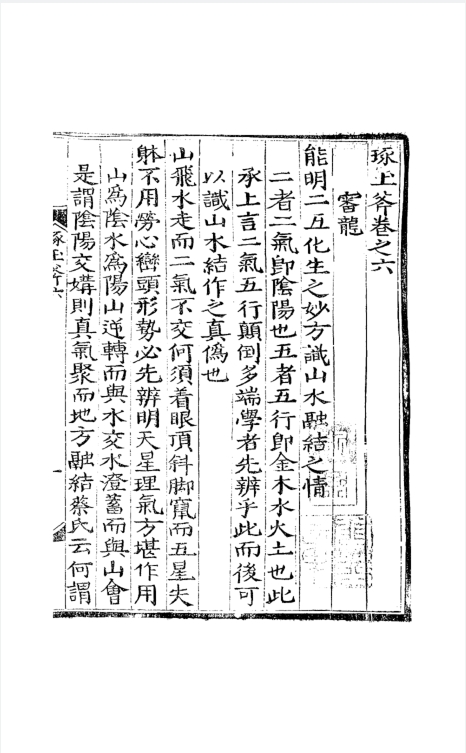 琢玉斧卷之六
審龍
能明二五化生之妙方識山水融結之情
二者二氣卽陰陽也五者五行卽金木水火土也此
承上言二氣五行顛倒多端學者先辨乎此而後可
以識山水結作之真僞也
山飛水走而二氣不交何須着眼頂斜脚竄而五星失
躰不用勞心巒頭形勢必先辨明天星理氣方堪作用
山爲陰水爲陽山逆轉而與水交水澄蓄而與山會
是謂陰陽交媾則真氣聚而地方融結蔡氏云何謂
琢玉斧六
一